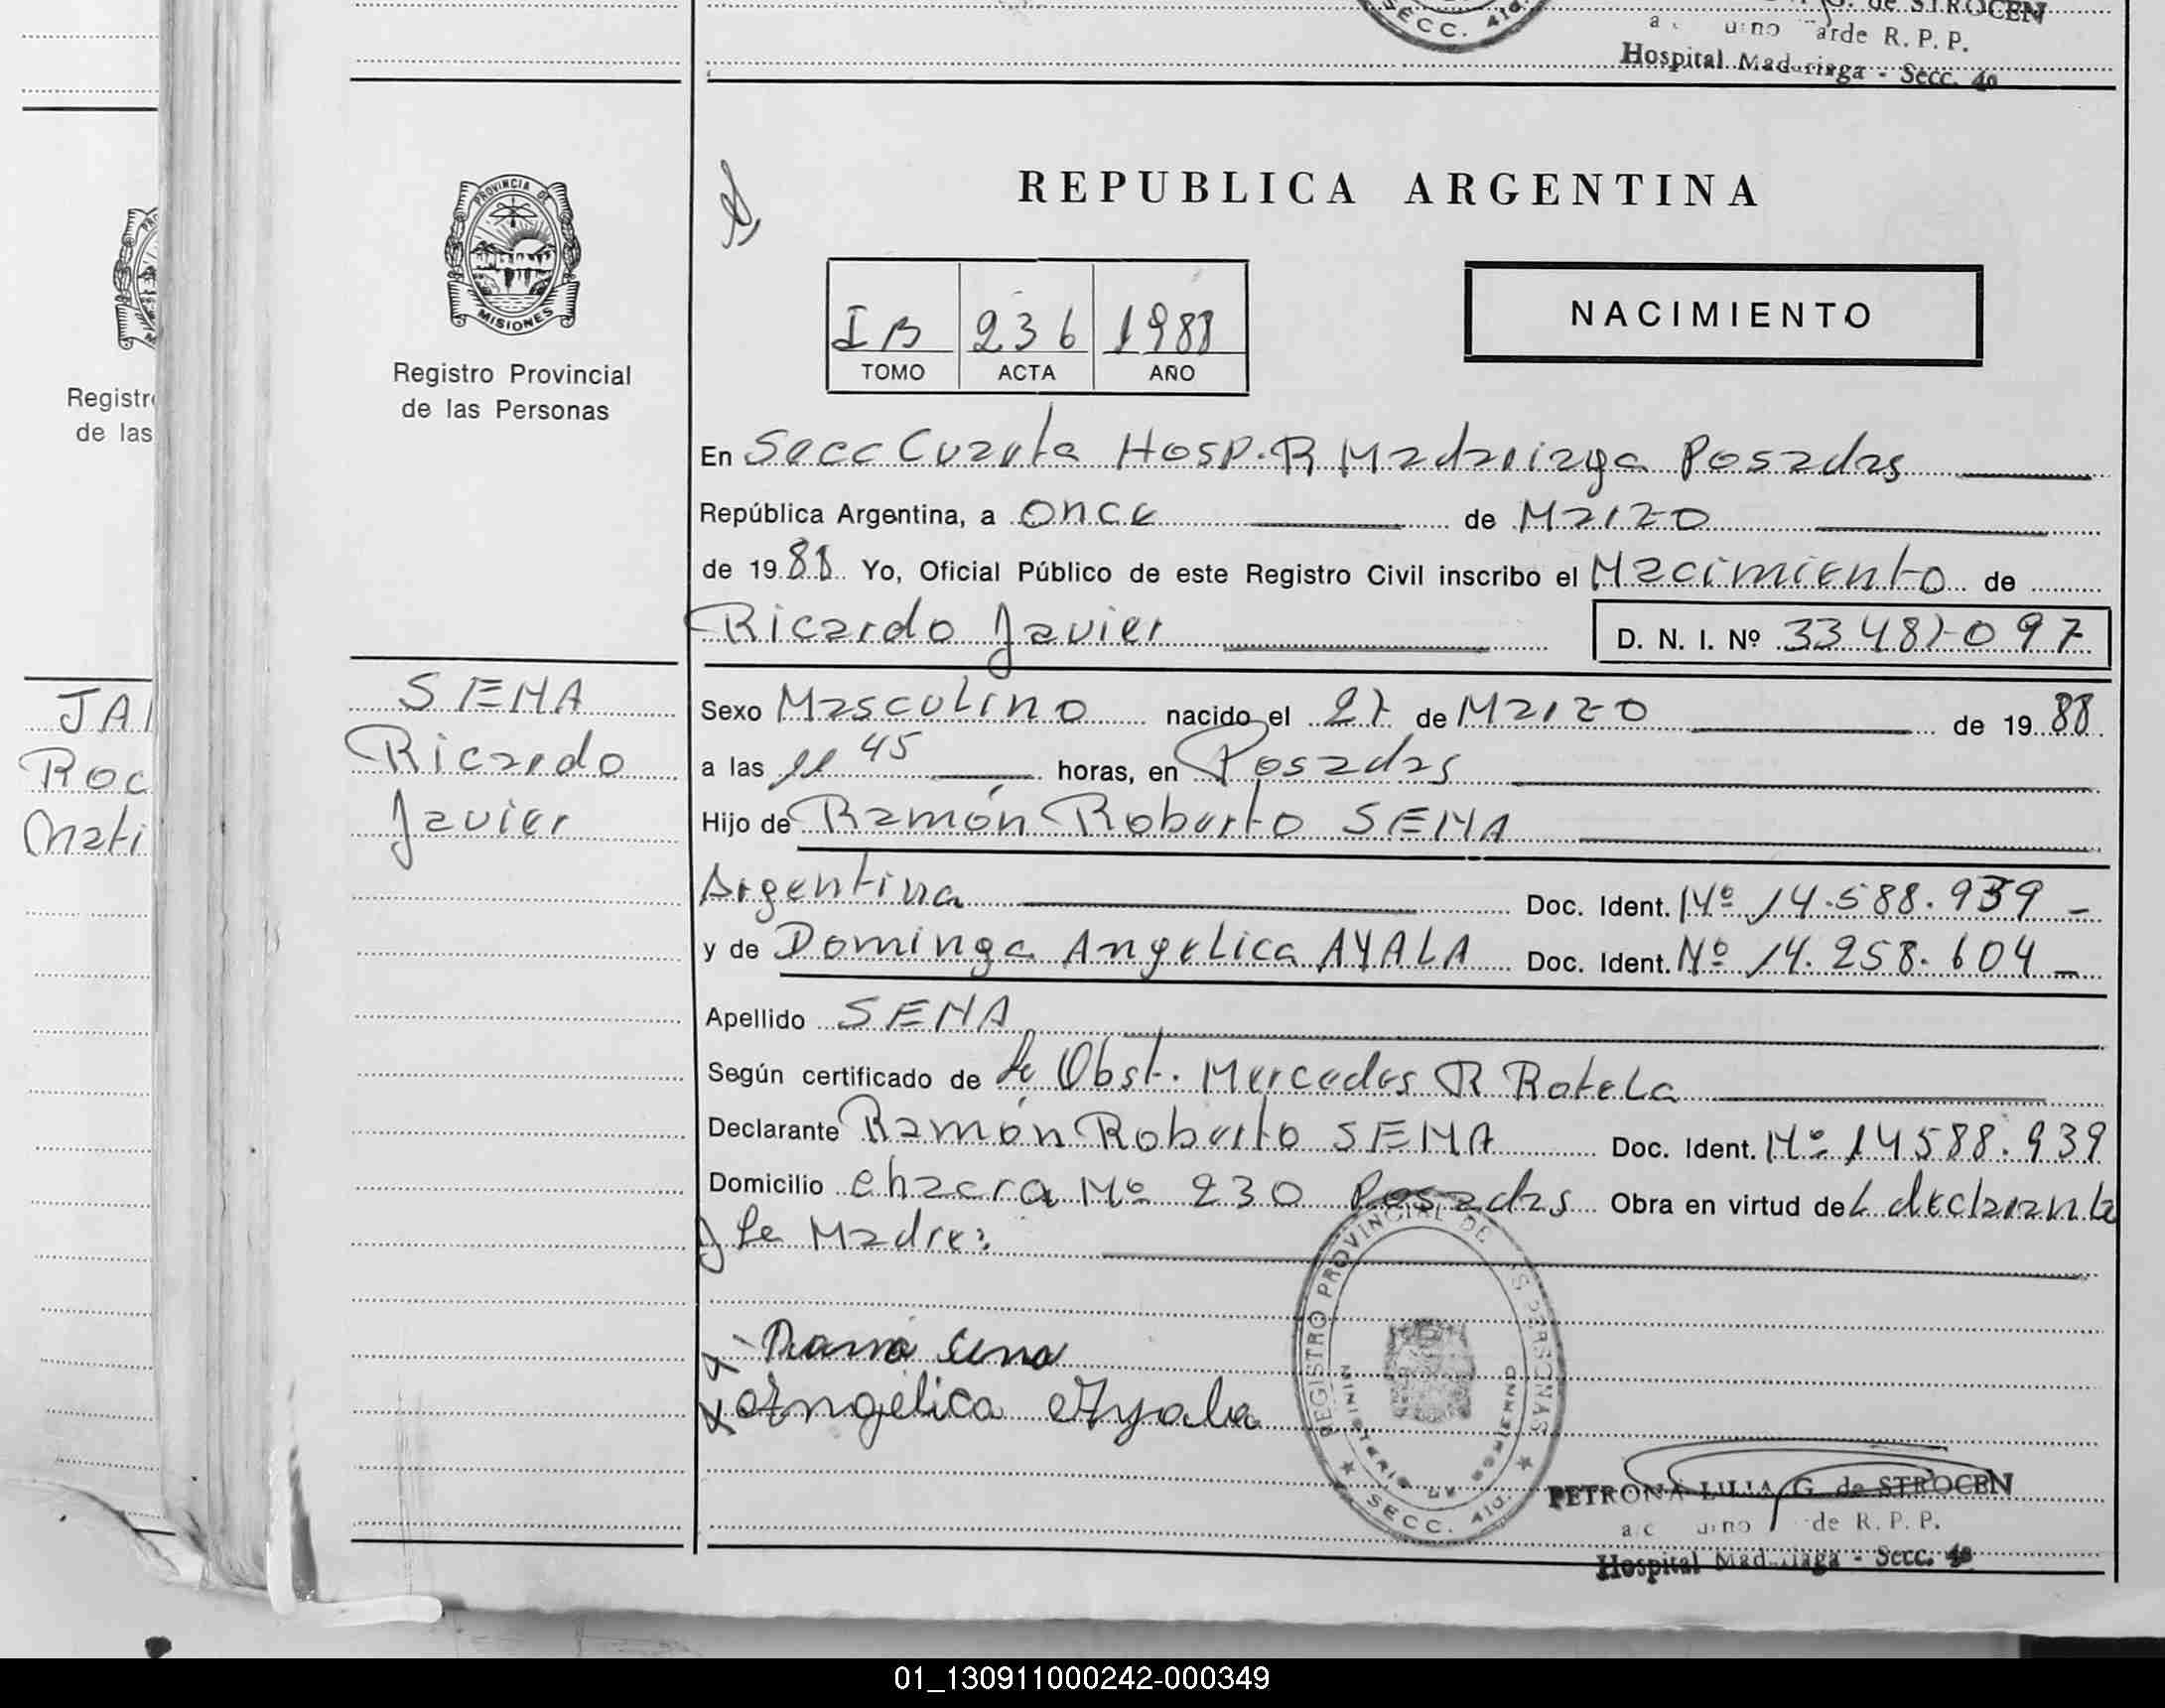 G. de STROCEN
arde R. P. P.
Hospital Madariaga - Secc. 4a
SECC. 4ta.
PROVINCIA DE
MISIONES
Registro Provincial
de las Personas
REPUBLICA ARGENTINA
IB 236 1988
TOMO ACTA AÑO
NACIMIENTO
En Secc Cuarta Hosp. R Madariaga Posadas
República Argentina, a once de Marzo
de 1988 Yo, Oficial Público de este Registro Civil inscribo el Nacimiento de
Ricardo Javier
D. N. I. Nº 33487097
Registr
de las
JA
Roc
Mati
SENA
Ricardo
Javier
Sexo Masculino nacido el de Marzo de 1988
a las 11 45 horas, en Posadas
Hijo de Ramón Roberto SENA
Argentina Doc. Ident. Nº 14.588.939 -
y de Dominga Angelica AYALA Doc. Ident. Nº 14.258.604 -
Apellido SENA
Según certificado de la Obst. Mercedes R Rotela
Declarante Ramón Roberto SENA Doc. Ident. Nº 14588.939
Domicilio chacra Nº 230 Posadas Obra en virtud de L declarante
y la Madre:
Ramo sena
Angélica Ayala
REGISTRO PROVINCIAL DE PERSONAS
MINISTERIO DE GOBIERNO
SECC. 4ta.
PETRONA LILIA G. de STROCEN
de R. P. P.
Hospital Madariaga - Secc. 4a
01_130911000242-000349